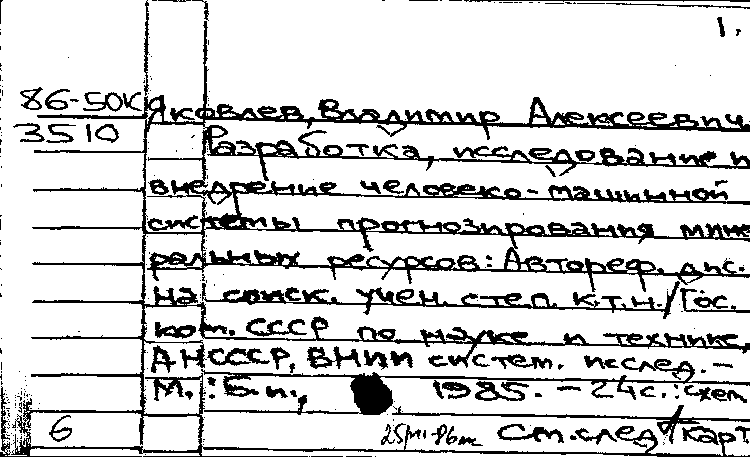 1.
86-50К Яковлев, Владимир Алексеевич.
3510 Разработка, исследование и
внедрение человеко-машинной
системы прогнозирования мине
ральных ресурсов: Автореф. дис.
на соиск. учен. степ. к.т.н./Гос.
ком. СССР по науке и технике,
АНСССР, ВНИИ систем. исслед. –
М.: Б.и., 1985. – 24с.: схем
6 См.след. карт